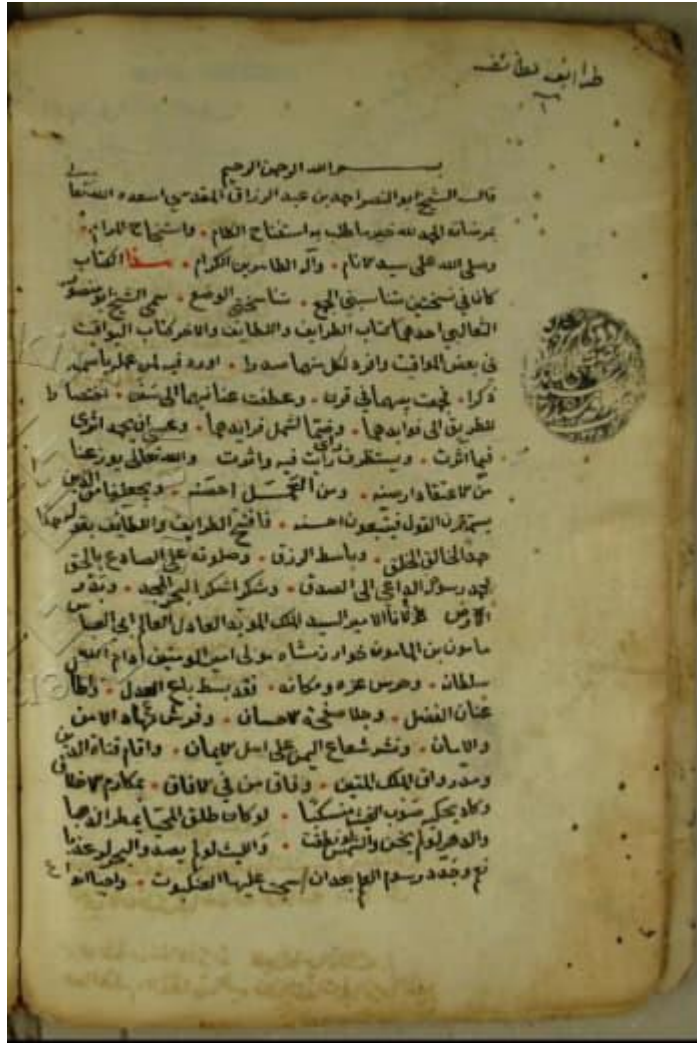 طرائف لطائف
بسم الله الرحمن الرحيم
قال الشيخ ابو النصر احمد بن عبد الرزاق المقدسي اسعده الله تعالى
بمرضاته الحمد لله خير ما طلب به استفتاح الكلام واستنجاح المرام
وصلى الله على سيد الانام وآله الطاهرين الكرام هذا الكتاب
كانا في نسختين متناسبتى الجمع متناسختى الوضع سمى الشيخ ابو منصور
الثعالبي احدهما كتاب الطرايف واللطايف والاخر كتاب اليواقيت
في بعض المواقيت وافرد لكل منهما صدرا اورد فيه لمن عمل باسمه
ذكرا فجمعت بينهما في قرن وعطفت عنانيهما الى سنن اختصارا
للطريق الى فوايدهما وضمّا لشمل فرايدهما وعسى ان يحمد اثرى
فيما آثرت ويستظرف رأى رأيت فيه واثرت والله تعالى يوزعنا
من الاعتقاد ارصنه ومن العمل احسنه ويجعلنا من الذين
يستمعون القول فيتبعون احسنه فافتتح الطرايف واللطايف بقوله
حمدا لخالق الخلق وباسط الرزق وصلوته على الصادع بالحق
محمد رسوله الداعي الى الصدق وشكرا
الارض الامير السيد الملك المؤيد العادل العالم ابى العباس
مامون بن المامون خوارزمشاه مولى امير المومنين ادام الله
سلطانه وحرس عزه ومكانه فقد بسط باع العدل
عنان الفضل وجلا صفحة الاحسان وفرش مهاد الامن
والامان ونشر شعاع اليمن على اهل الايمان واقام قناة الدين
ومد رواق الملك المتين وفاق من في الافاق بمكارم الاخلاق
وكاد يحكيه صوب الغيث منسكبا لو كان طلق المحيا يمطر الذهبا
والدهر لو لم يخن والشمس لو نطقت والليث لو لم يصد والبحر لو عذبا
نعم وجدد رسوم العلم بعد ان نسج عليها العنكبوت